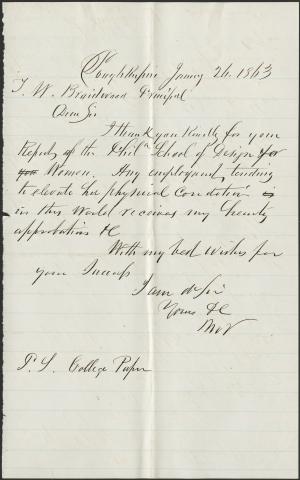 Poughkeepsie Janry 26. 1863
T. W. Braidwood Principal
Dear Sir
I thank you kindly for your
Report of the Phila School of Design for
for Women. Any employment tending
to elevate her physical condition is
in this World receives my hearty
approbation &c
With my best wishes for
your Success
I am d Sir
Yours &c
M. V
P. S. College Paper